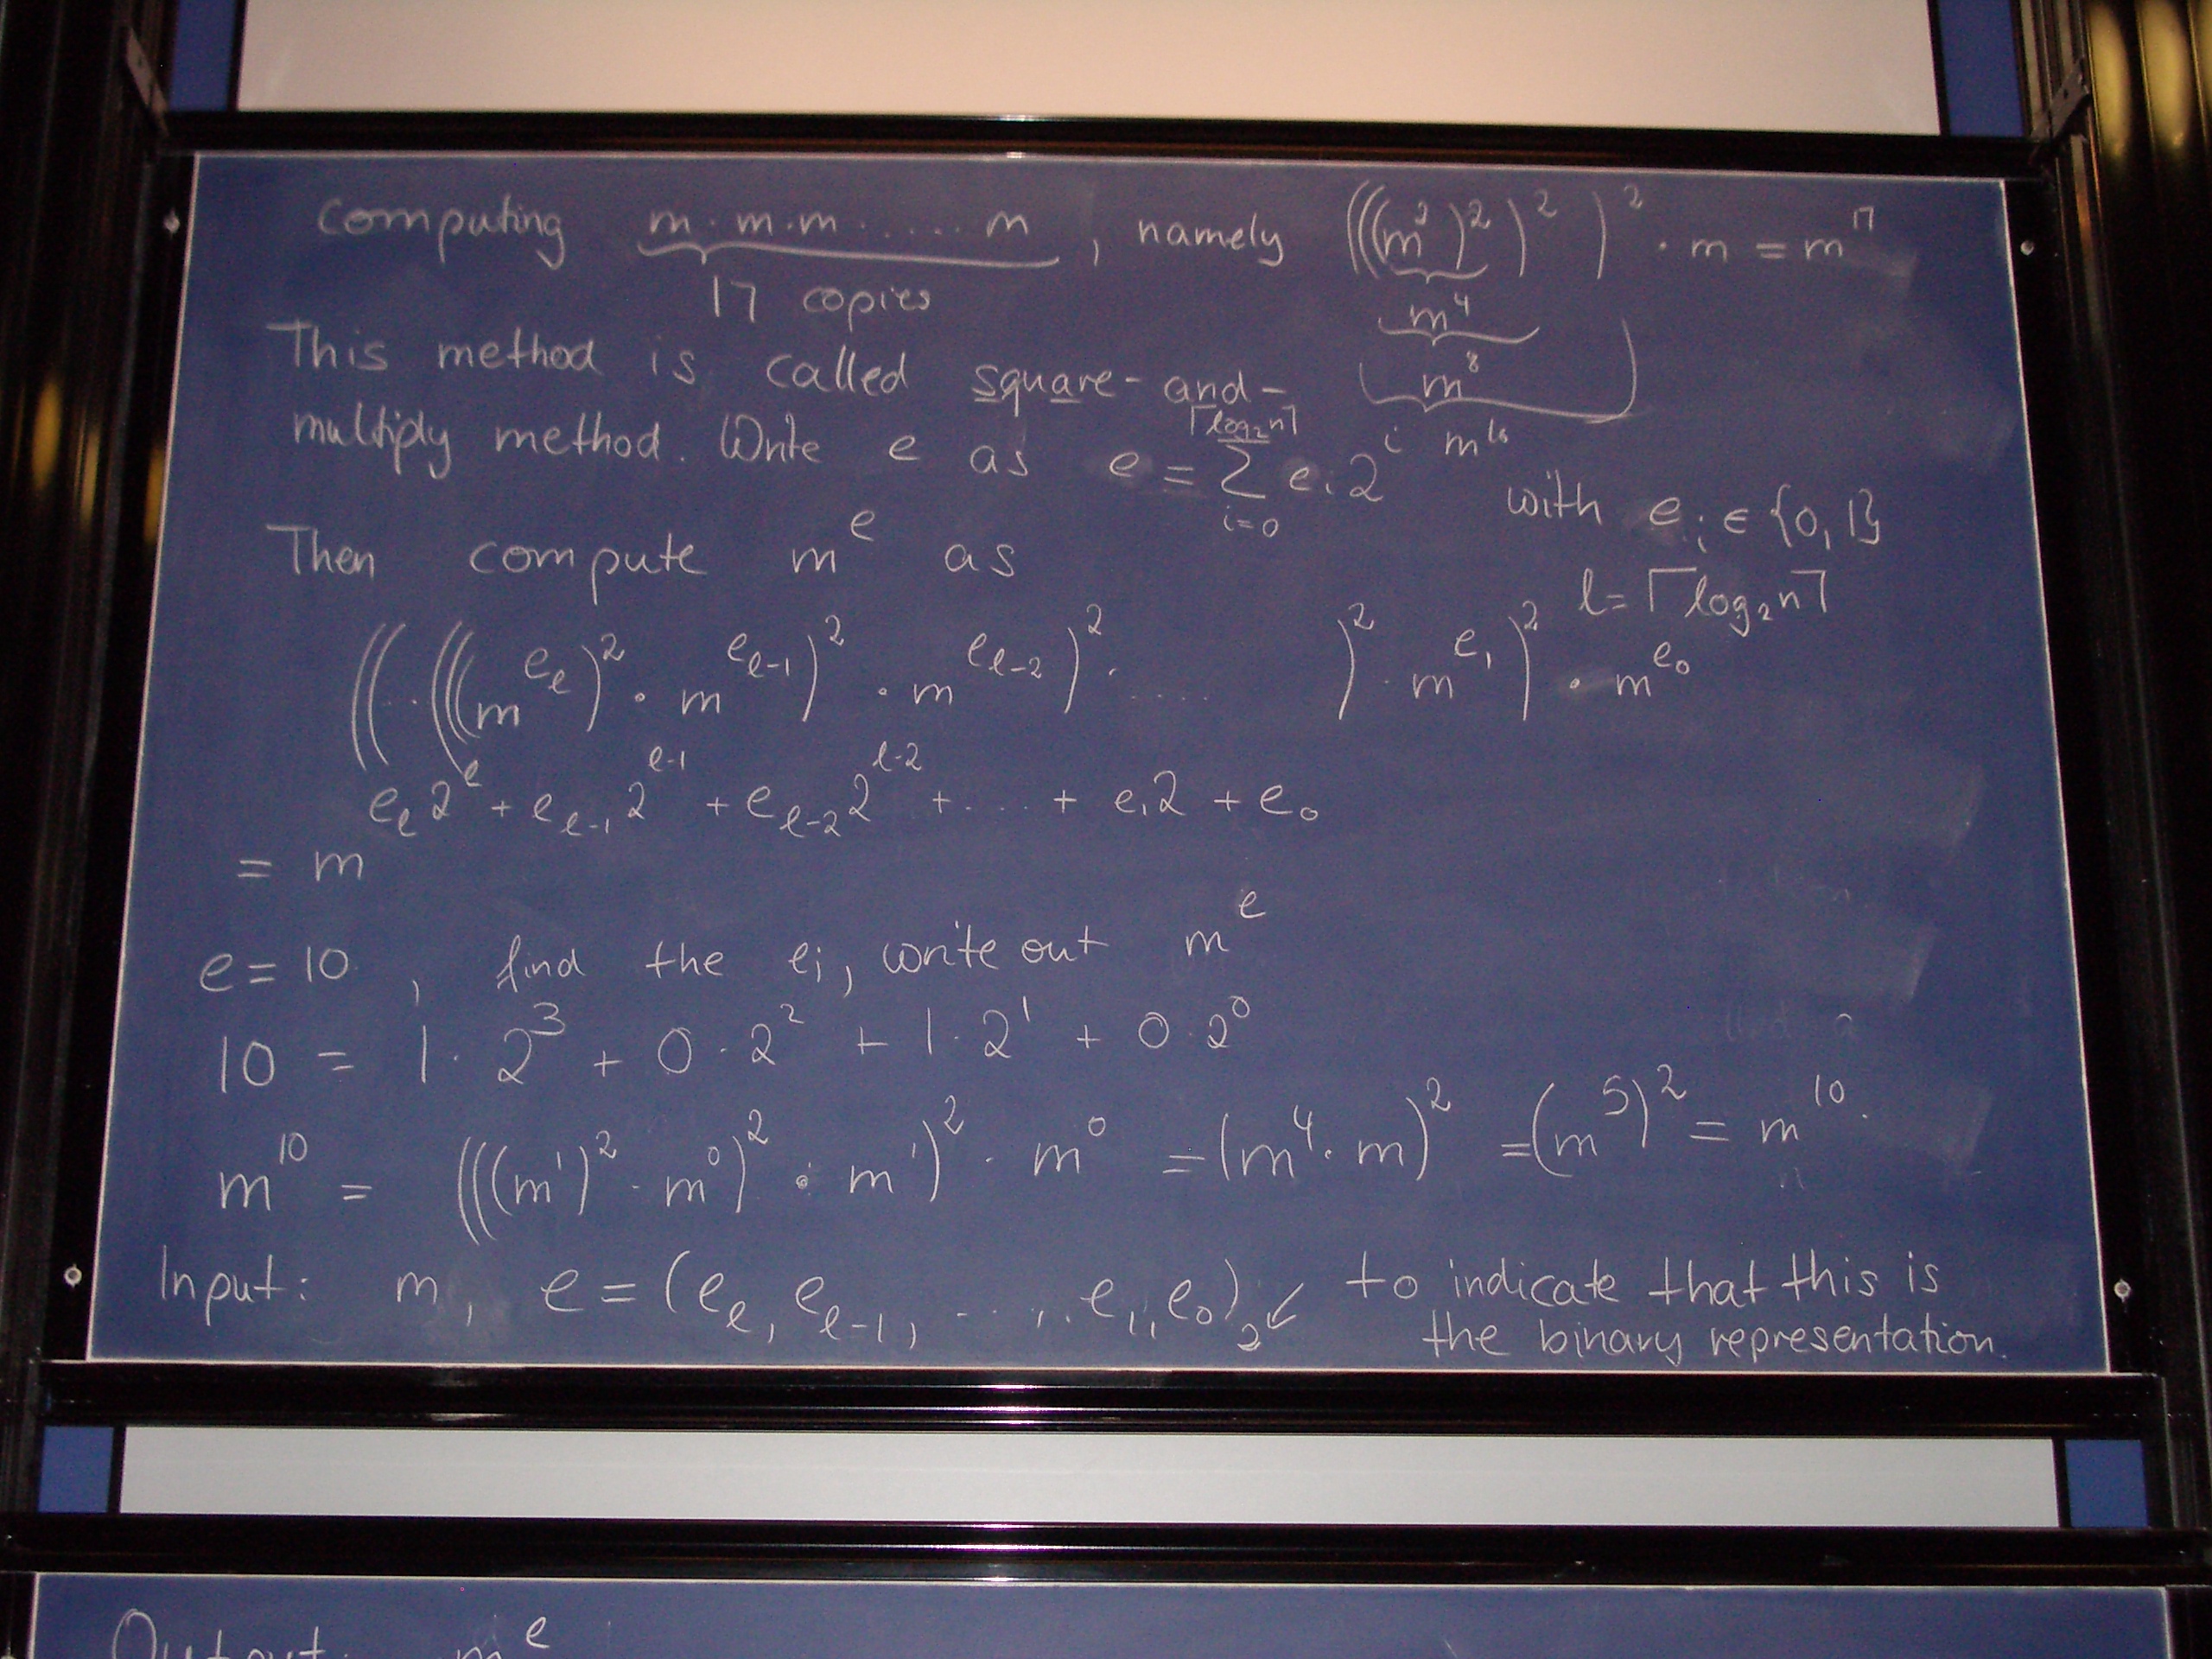 computing m·m·m·.....m , namely ((((m²)²)²)²·m = m¹⁷
17 copies
m⁴
m⁸
m¹⁶
This method is called square-and-
multiply method. Write e as e = ∑_{i=0}^{⌈log₂n⌉} eᵢ2ⁱ with eᵢ ∈ {0,1}
l = ⌈log₂n⌉
Then compute mᵉ as
((··(((m^{e_l})²·m^{e_{l-1}})²·m^{e_{l-2}})²·.... )²·m^{e₁})²·m^{e₀}
= m^{e_l 2^l + e_{l-1} 2^{l-1} + e_{l-2} 2^{l-2} + .... + e₁2 + e₀}
e = 10 , find the eᵢ, write out mᵉ
10 = 1·2³ + 0·2² + 1·2¹ + 0·2⁰
m¹⁰ = (((m¹)²·m⁰)²·m¹)²·m⁰ = (m⁴·m)² = (m⁵)² = m¹⁰.
Input: m, e = (e_l, e_{l-1}, ...,. e₁, e₀)₂ ↙ to indicate that this is
the binary representation.
Output: mᵉ